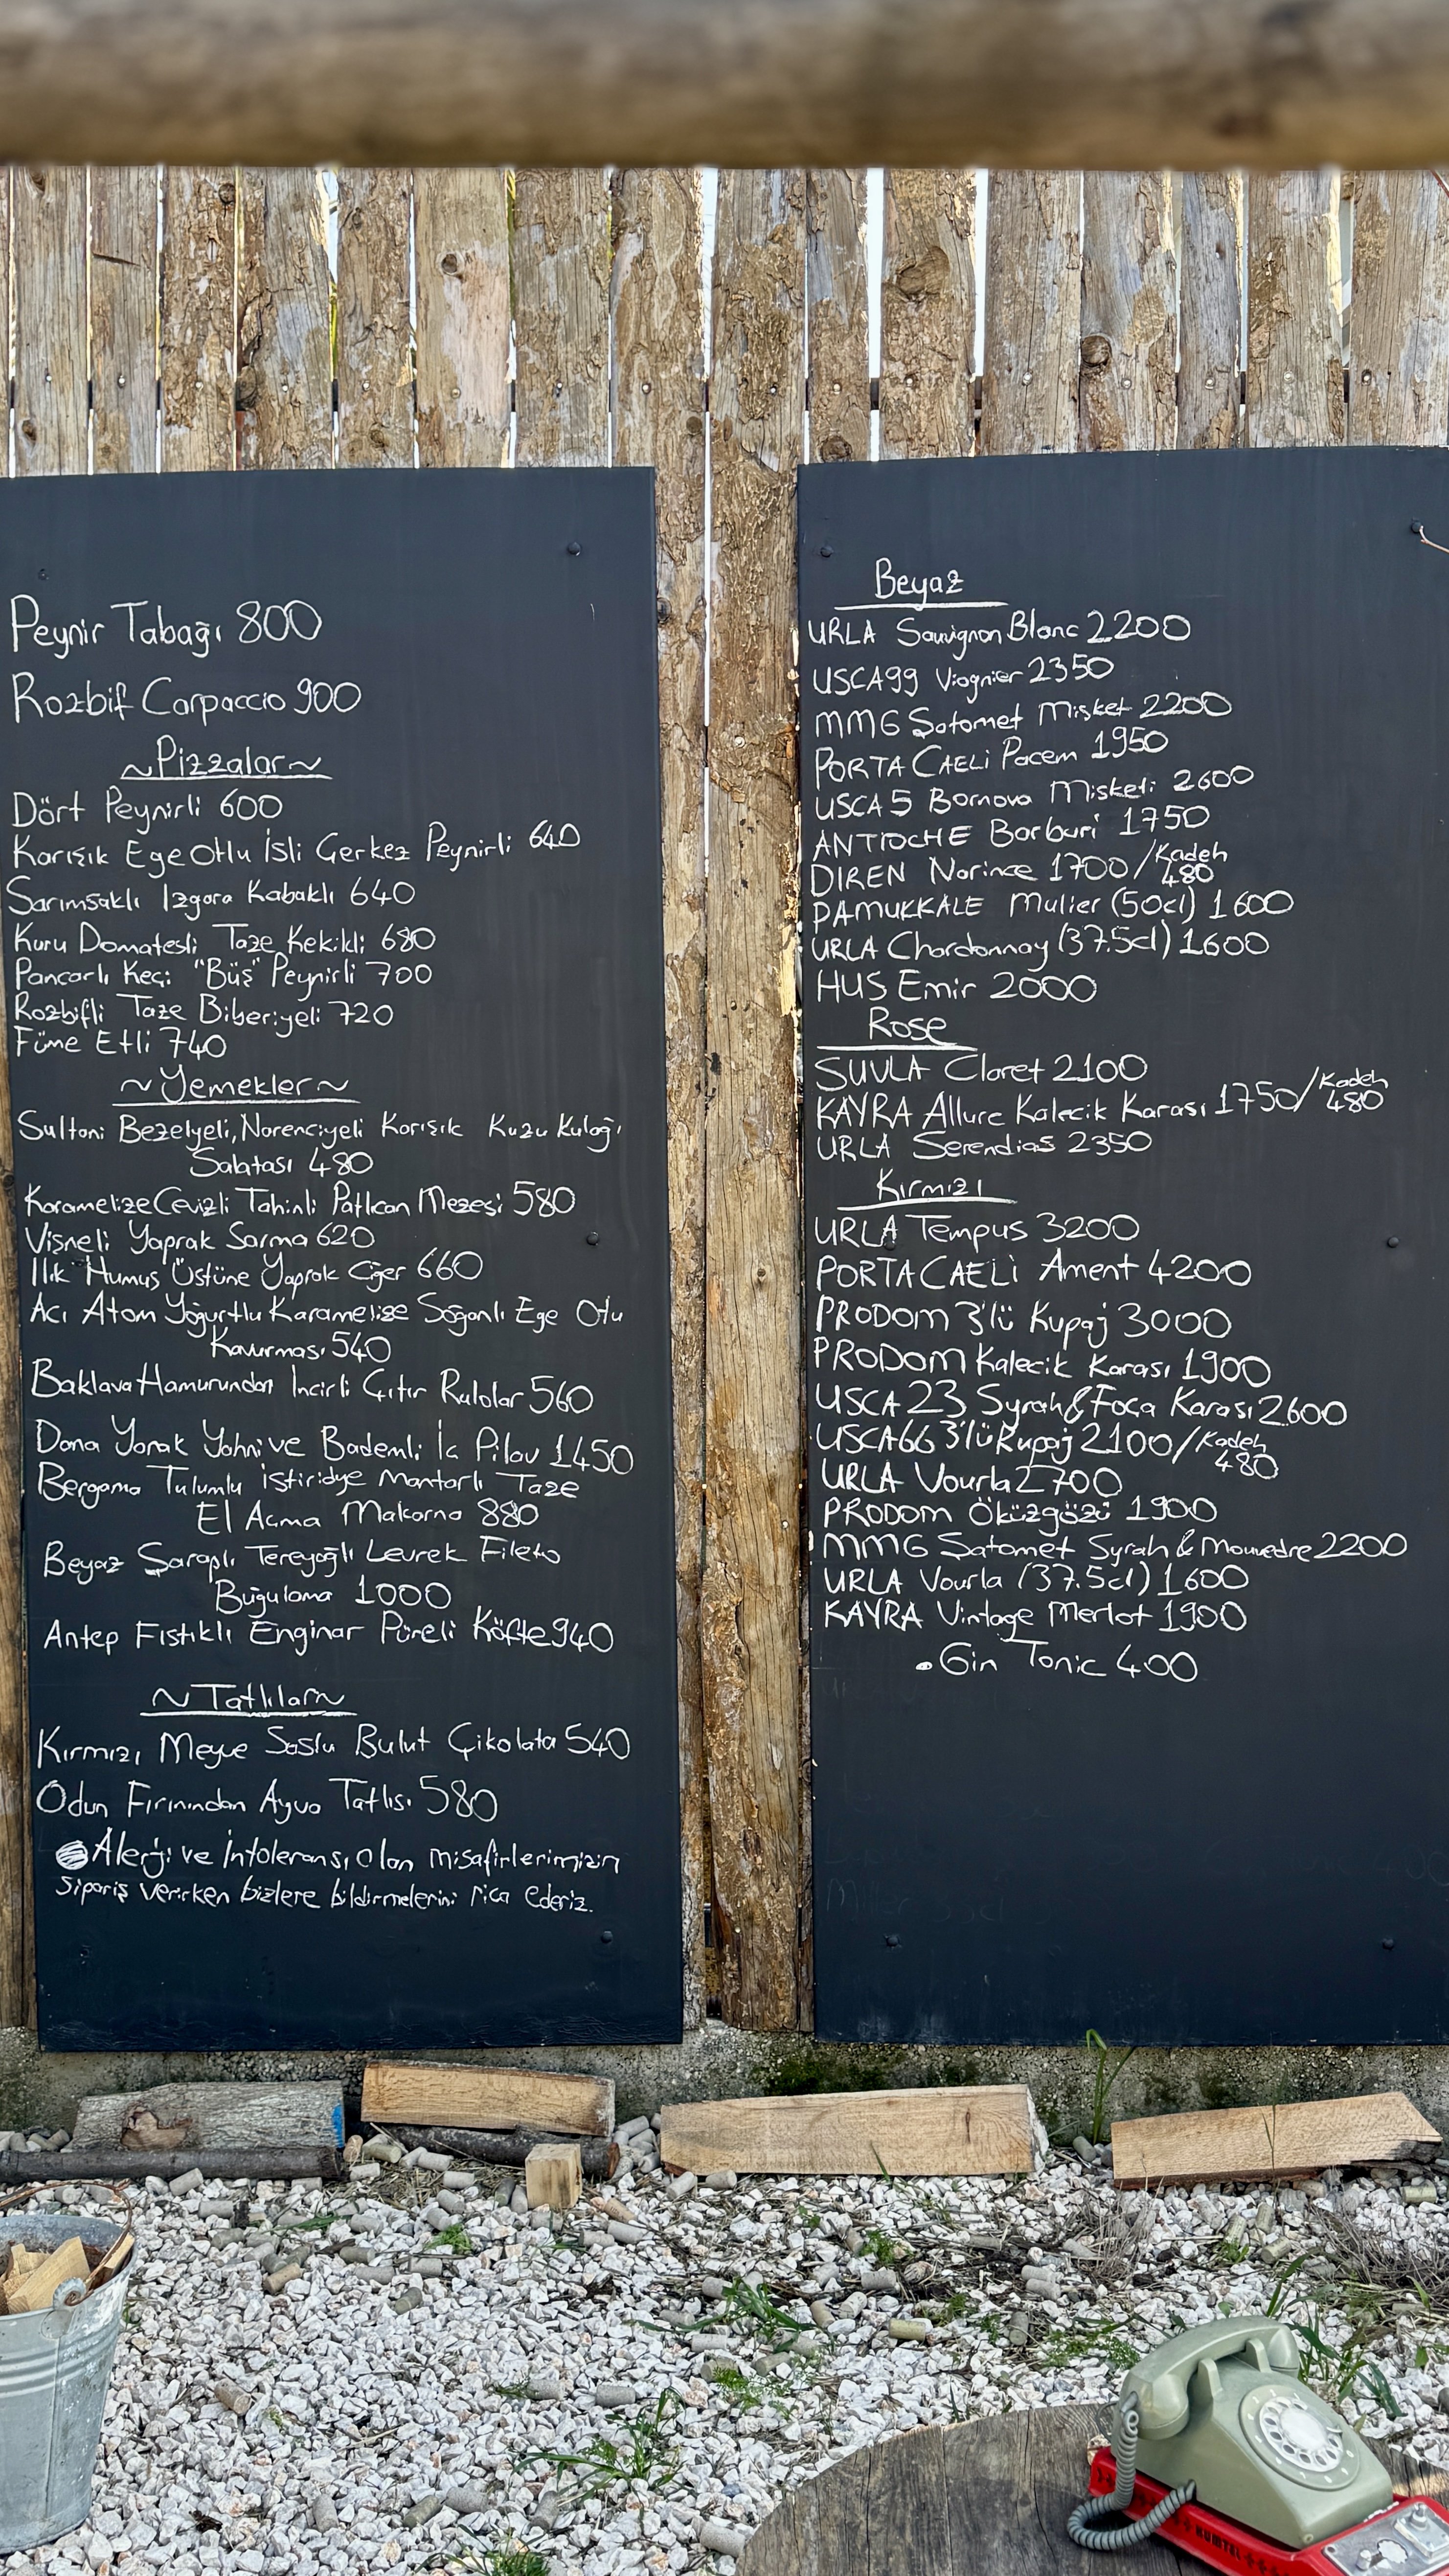 Peynir Tabağı 800
Rozbif Carpaccio 900
~Pizzalar~
Dört Peynirli 600
Karışık Ege Otlu İsli Çerkez Peynirli 640
Sarımsaklı Izgara Kabaklı 640
Kuru Domatesli Taze Kekikli 680
Pancarlı Keçi "Büş" Peynirli 700
Rozbifli Taze Biberiyeli 720
Füme Etli 740
~Yemekler~
Sultani Bezelyeli, Narenciyeli Karışık Kuzu Kulağı
Salatası 480
Karamelize Cevizli Tahinli Patlıcan Mezesi 580
Vişneli Yaprak Sarma 620
Ilık Humus Üstüne Yaprak Ciğer 660
Acı Atom Yoğurtlu Karamelize Soğanlı Ege Otu
Kavurması 540
Baklava Hamurundan İncirli Çıtır Rulolar 560
Dana Yanak Yahni ve Bademli İç Pilav 1450
Bergama Tulumlu İstiridye Mantarlı Taze
El Açma Makarna 880
Beyaz Şaraplı Tereyağlı Levrek Fileto
Buğulama 1000
Antep Fıstıklı Enginar Püreli Köfte 940
~Tatlılar~
Kırmızı Meyve Soslu Bulut Çikolata 540
Odun Fırınından Ayva Tatlısı 580
Alerji ve İntoleransı olan misafirlerimizin
sipariş verirken bizlere bildirmelerini rica ederiz.
Beyaz
URLA Sauvignon Blanc 2200
USCA99 Viognier 2350
MMG Satomet Misket 2200
PORTA CAELİ Pacem 1950
USCA 5 Bornova Misketi 2600
ANTIOCHE Barburi 1750
DIREN Narince 1700/Kadeh
480
PAMUKKALE Mulier (50cl) 1600
URLA Chardonnay (37.5cl) 1600
HUS Emir 2000
Rose
SUVLA Claret 2100
KAYRA Allure Kalecik Karası 1750/Kadeh
480
URLA Serendias 2350
Kırmızı
URLA Tempus 3200
PORTA CAELİ Ament 4200
PRODOM 3'lü Kupaj 3000
PRODOM Kalecik Karası 1900
USCA 23 Syrah & Foça Karası 2600
USCA66 3'lü Kupaj 2100/Kadeh
480
URLA Vourla 2700
PRODOM Öküzgözü 1900
MMG Satomet Syrah & Mouvedre 2200
URLA Vourla (37.5cl) 1600
KAYRA Vintage Merlot 1900
.Gin Tonic 400
KUMTEL